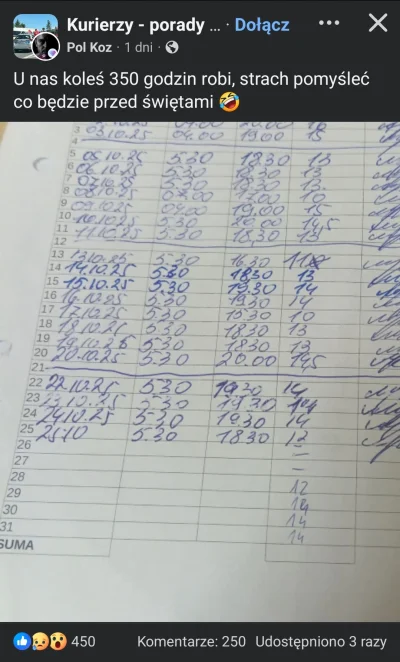 Kurierzy - porady ... · Dołącz
Pol Koz · 1 dni ·
U nas koleś 350 godzin robi, strach pomyśleć
co będzie przed świętami 🤣
3 03.10.25 04.00 19.00 15
4
5 05.10.25 5.30 18.30 13
6 06.10.25 5.30 18.30 13
7 07.10.25 5.30 18.30 13
8 08.10.25 07.00 17.00 10
9 09.10.25 04.00 19.00 15
10 10.10.25 5.30 20.00 14,5
11 11.10.25 5.30 18.30 13
12
13 13.10.25 5.30 16.30 11
14 14.10.25 5.30 18.30 13
15 15.10.25 5.30 19.30 14
16 16.10.25 5.30 19.30 14
17 17.10.25 5.30 15.30 10
18 18.10.25 5.30 18.30 13
19 19.10.25 5.30 18.30 13
20 20.10.25 5.30 20.00 14,5
21
22 22.10.25 5.30 19.30 14
23 23.10.25 5.30 19.30 14
24 24.10.25 5.30 19.30 14
25 25.10 5.30 18.30 13
26 –
27 –
28
29 12
30 14
31 14
SUMA 14
450 Komentarze: 250 Udostępniono 3 razy